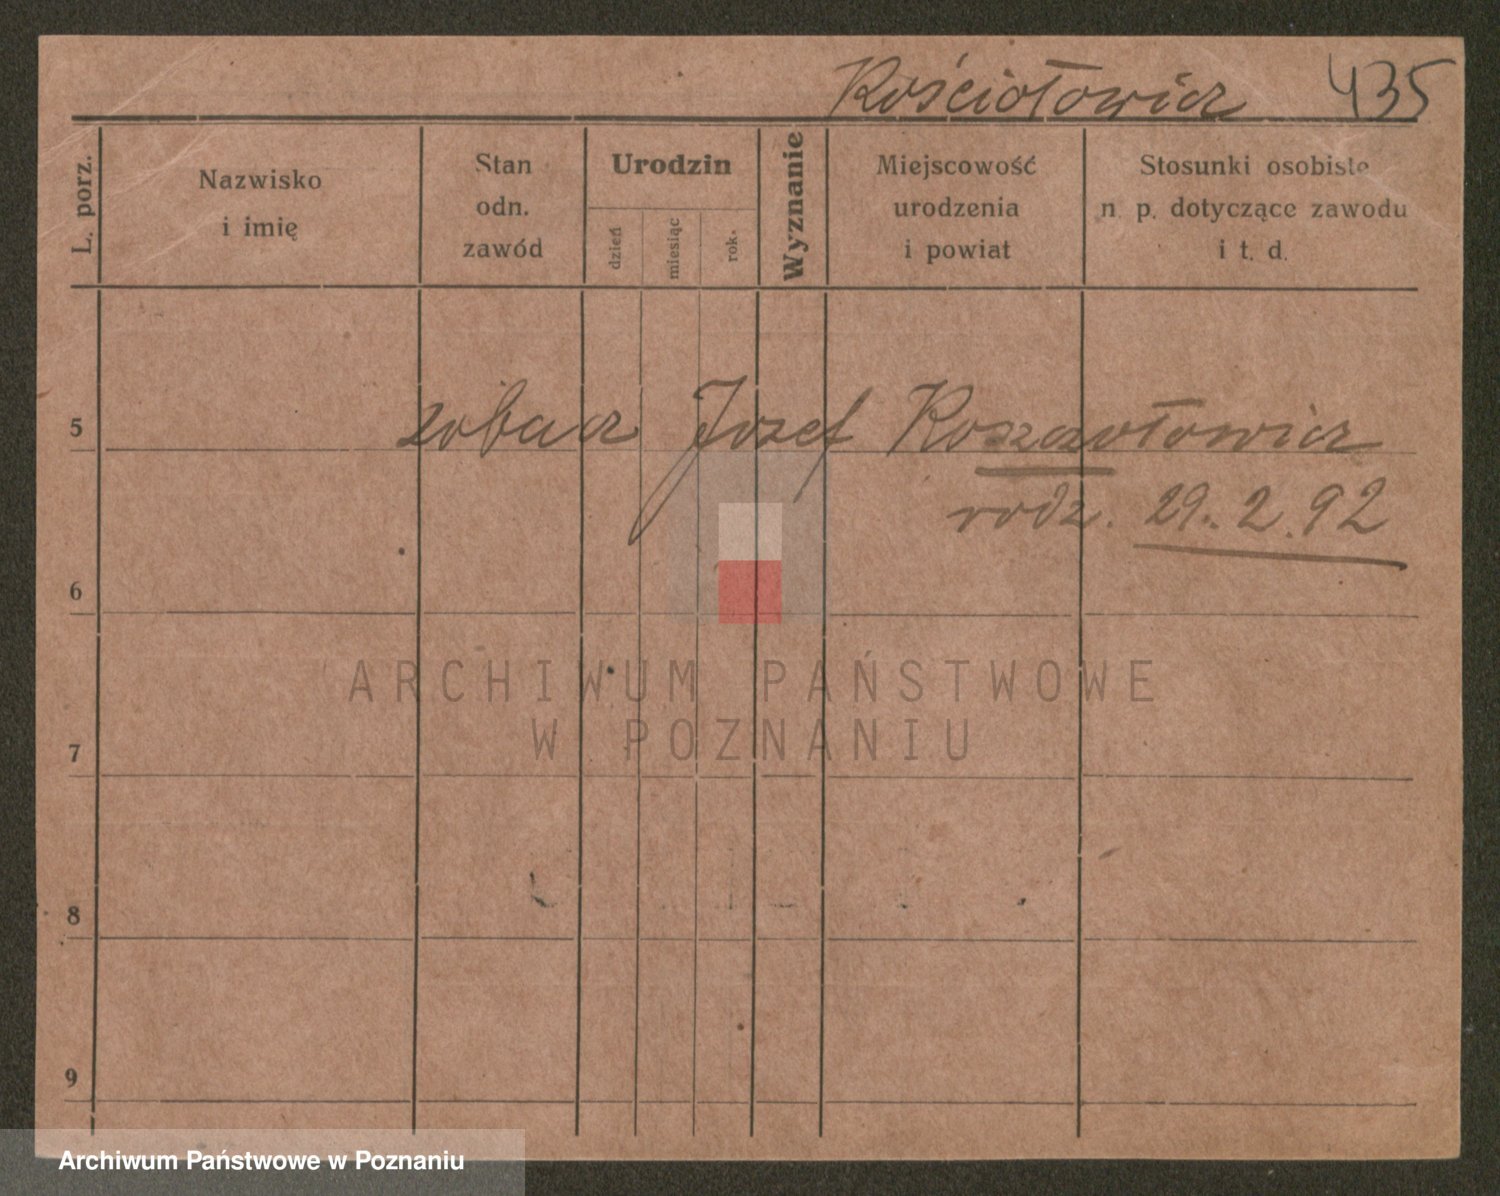 Kościołowicz 435
L. porz.
Nazwisko
i imię
Stan
odn.
zawód
Urodzin
dzień
miesiąc
rok.
Wyznanie
Miejscowość
urodzenia
i powiat
Stosunki osobiste
n. p. dotyczące zawodu
i t. d.
5
zobacz Jozef Koszczołowicz
rodz. 29. 2. 92
6
ARCHIWUM PAŃSTWOWE
W POZNANIU
7
8
9
Archiwum Państwowe w Poznaniu